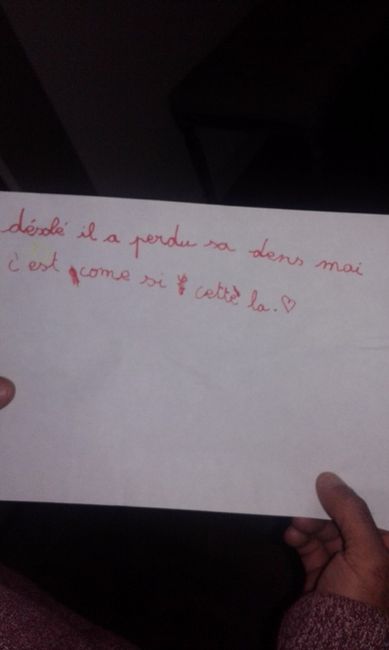 désolé il a perdu sa dens mai
c'est come si cettè la.♡